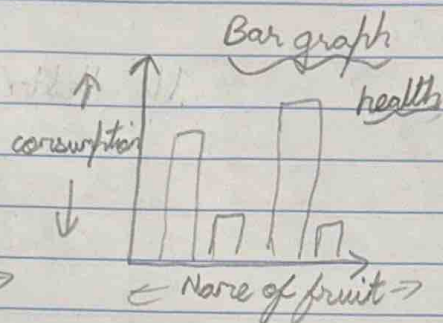 Bar graph
health
consumption
Name of fruit